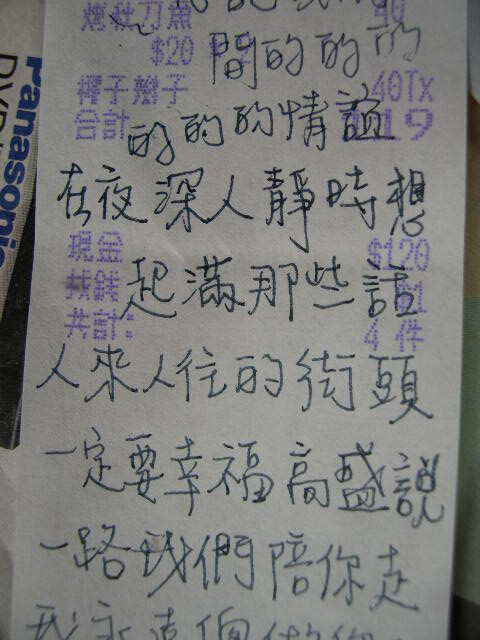 Panasonic
DV
刀魚
$20
間的的的
40Tx
合計
119
的的的情誼
在夜深人靜時想
現金 $120
起滿那些話
找錢 $1
共計: 4 件
人來人往的街頭
一定要幸福高盛說
一路我們陪你走
我永遠